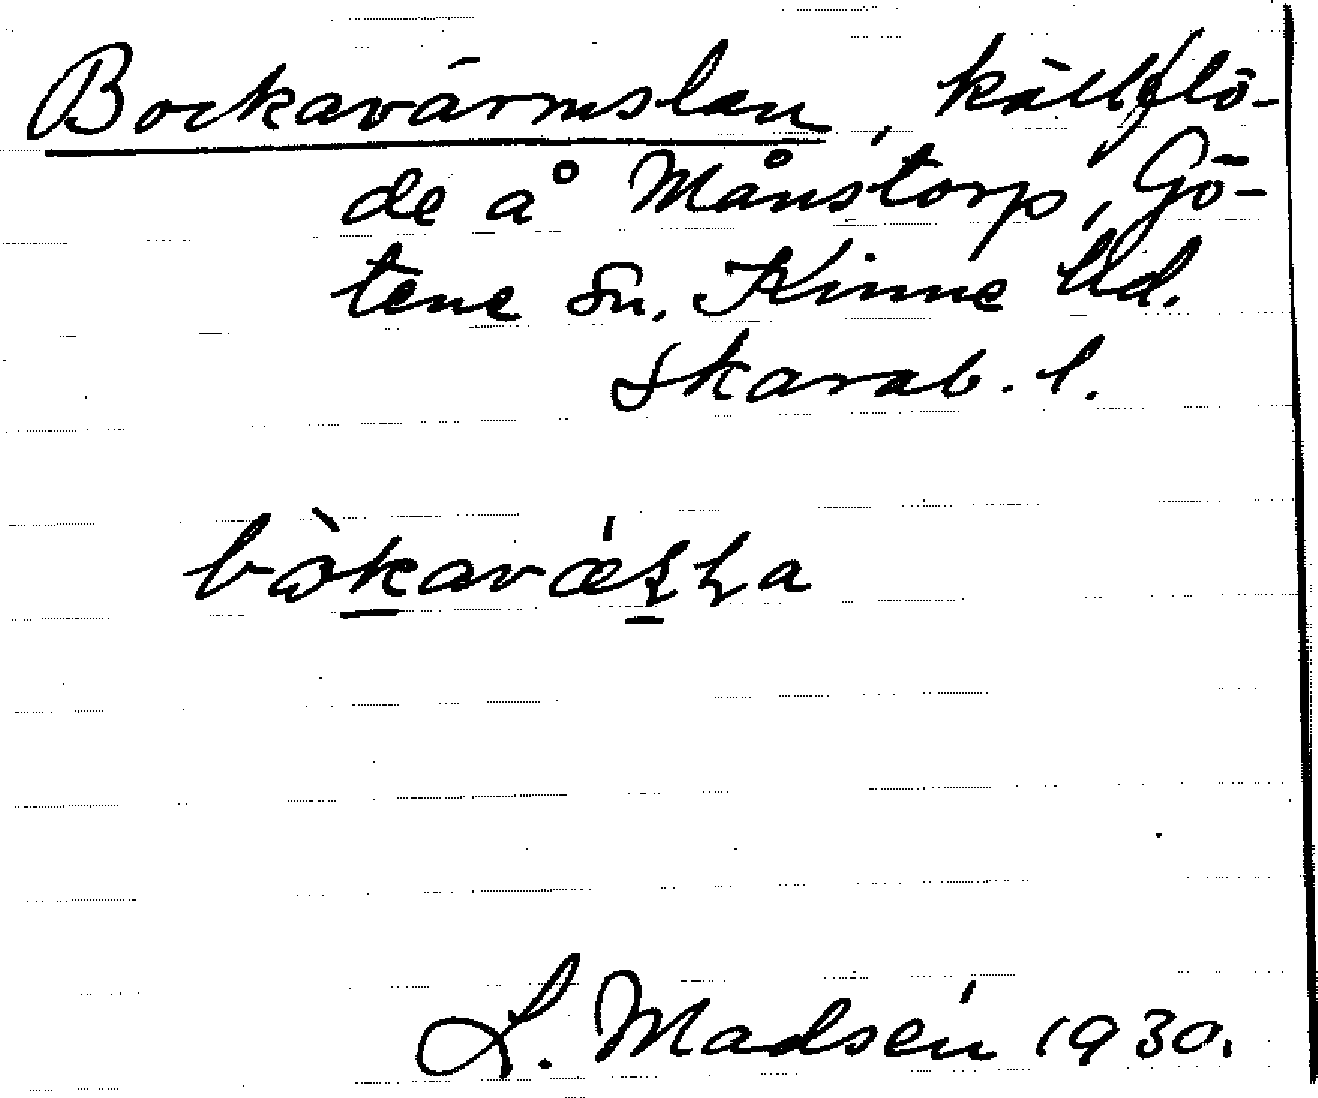 Bockavärmslan, källflö-
de å Månstorp, Gö-
tene sn. Kinne hd.
Skarab. l.
L. Madsén 1930.